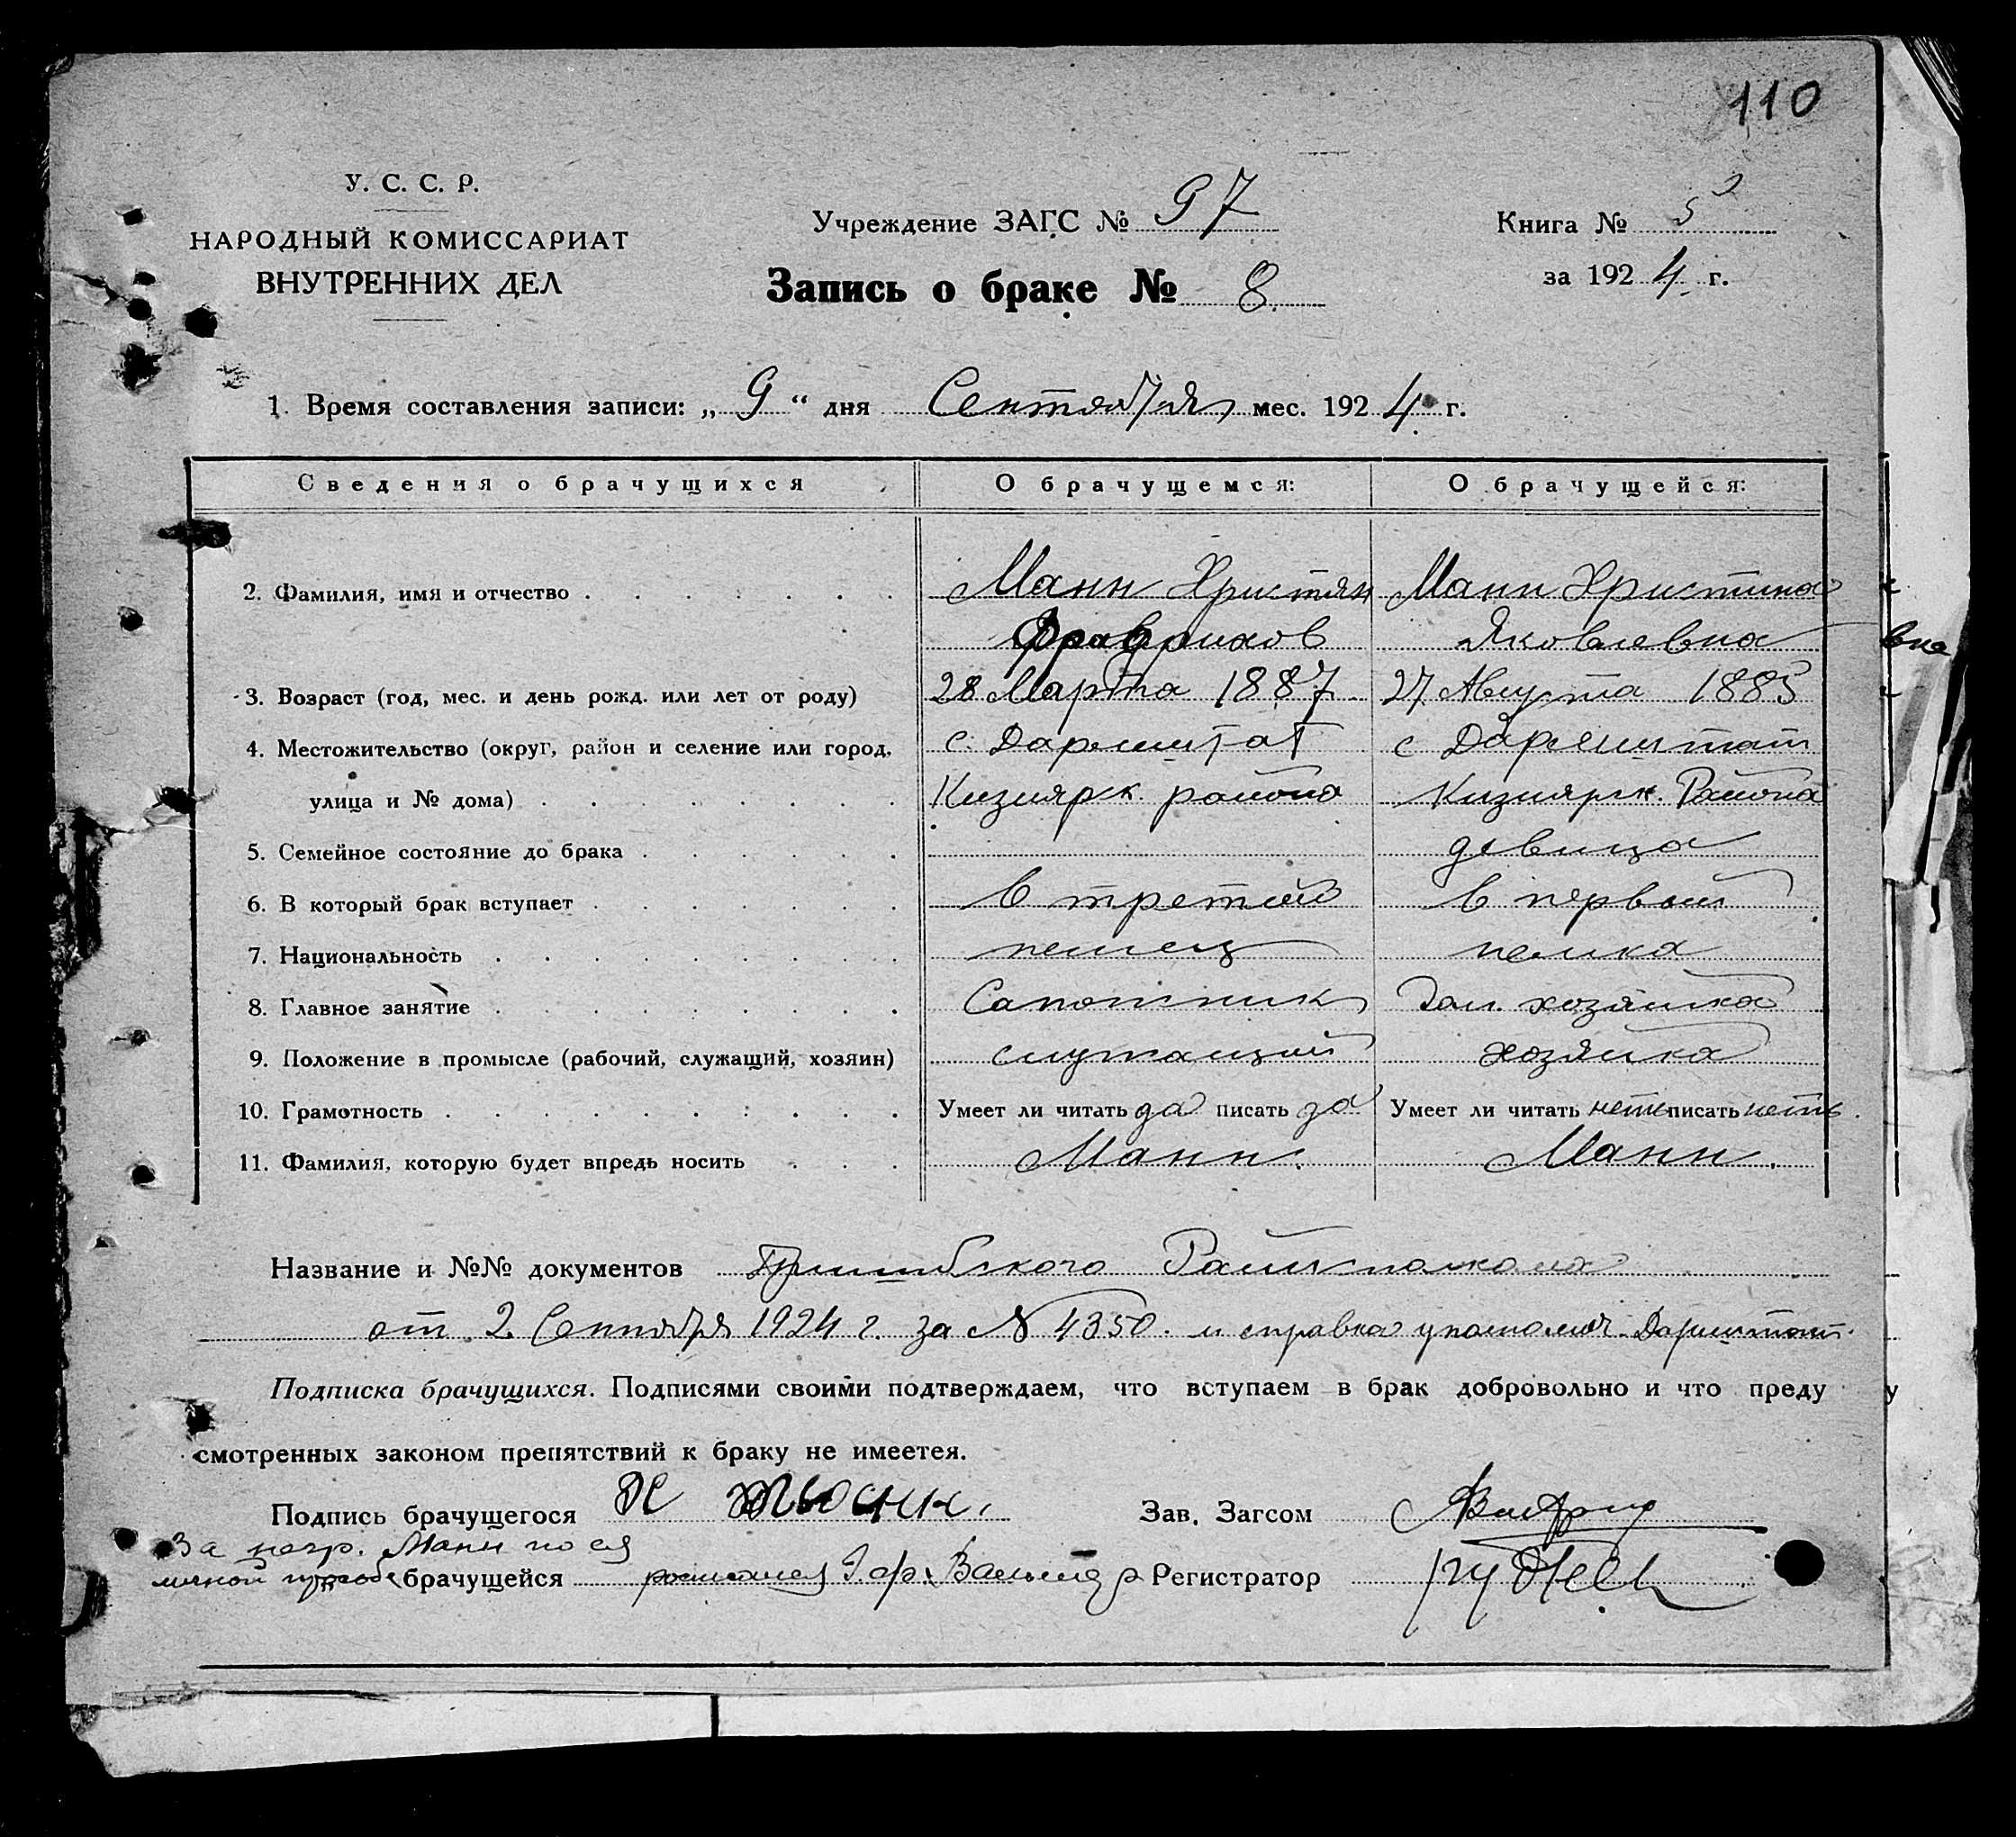 110
У. С. С. Р.
НАРОДНЫЙ КОМИССАРИАТ
ВНУТРЕННИХ ДЕЛ
Учреждение ЗАГС № 97
Книга № 5
Запись о браке № 8
за 1924 г.
1. Время составления записи: „ 9 “ дня Сентября мес. 1924 г.
Сведения о брачущихся О брачущемся: О брачущейся:
2. Фамилия, имя и отчество Манн Христян Манн Христина
Яковлевна
3. Возраст (год, мес. и день рожд. или лет от роду) 28 Марта 1887 27 Августа 1885
4. Местожительство (округ, район и селение или город, с. Дармштат с Дармштат
улица и № дома) Кизиярск. района Кизиярск. Района
5. Семейное состояние до брака девица
6. В который брак вступает в третий в первый
7. Национальность немец немка
8. Главное занятие Сапожник Дом. хозяйка
9. Положение в промысле (рабочий, служащий, хозяин) служащий хозяйка
10. Грамотность Умеет ли читать да писать да Умеет ли читать неть писать неть
11. Фамилия, которую будет впредь носить Манн. Манн.
Название и №№ документов Пришибского Райисполкома
от 2 Сентября 1924 г. за № 4350. и справка уполномоч. Дармштат.
Подписка брачущихся. Подписями своими подтверждаем, что вступаем в брак добровольно и что преду
смотренных законом препятствий к браку не имеетея.
Подпись брачущегося Х Манн. Зав. Загсом
За негр. Манн по ея
личной просьбе брачущейся росписался Вальтер Регистратор
вна
у